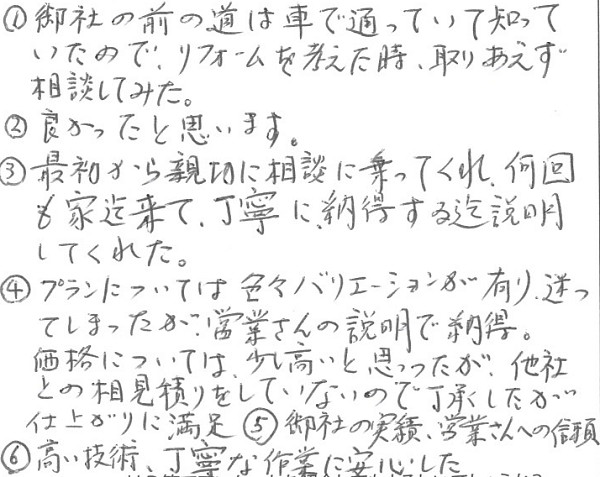 ①御社の前の道は車で通っていて知って
いたので、リフォームを考えた時、取りあえず
相談してみた。
②良かったと思います。
③最初から親切に相談に乗ってくれ、何回
も家迄来て、丁寧に、納得する迄説明
してくれた。
④プランについては色々バリエーションが有り、迷っ
てしまったが、営業さんの説明で納得。
価格については、少し高いと思ったが、他社
との相見積りをしていないので了承したが
仕上がりに満足 ⑤御社の実績、営業さんへの信頼
⑥高い技術、丁寧な作業に安心した